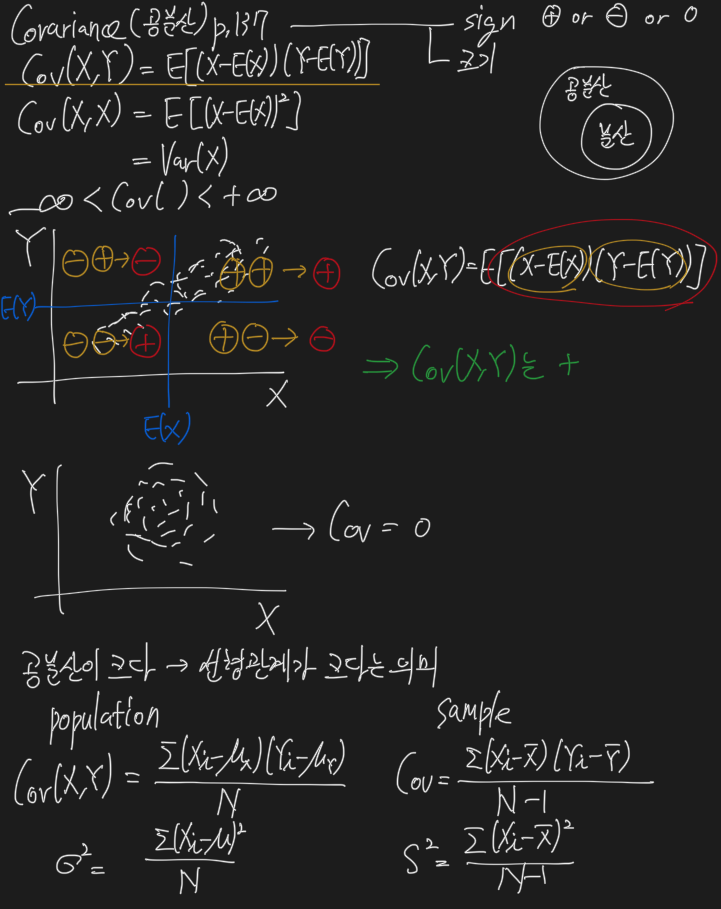 Covariance (공분산) p.137 sign ⊕ or ⊖ or 0
크기
Cov(X,Y) = E[(X-E(X))(Y-E(Y))]
Cov(X,X) = E[(X-E(X))²]
= Var(X)
-∞ < Cov( ) < +∞
공분산
분산
Y
⊖⊕→⊖ ⊕⊕→⊕
E(Y)
⊖⊖→⊕ ⊕⊖→⊖
X
E(X)
Cov(X,Y)=E[(X-E(X))(Y-E(Y))]
⇒ Cov(X,Y)는 +
Y
→ Cov = 0
X
공분산이 크다 → 선형관계가 크다는 의미
population
Cov(X,Y) = Σ(Xi-μx)(Yi-μY) / N
σ² = Σ(Xi-μ)² / N
sample
Cov = Σ(Xi-X̄)(Yi-Ȳ) / N-1
S² = Σ(Xi-X̄)² / N-1